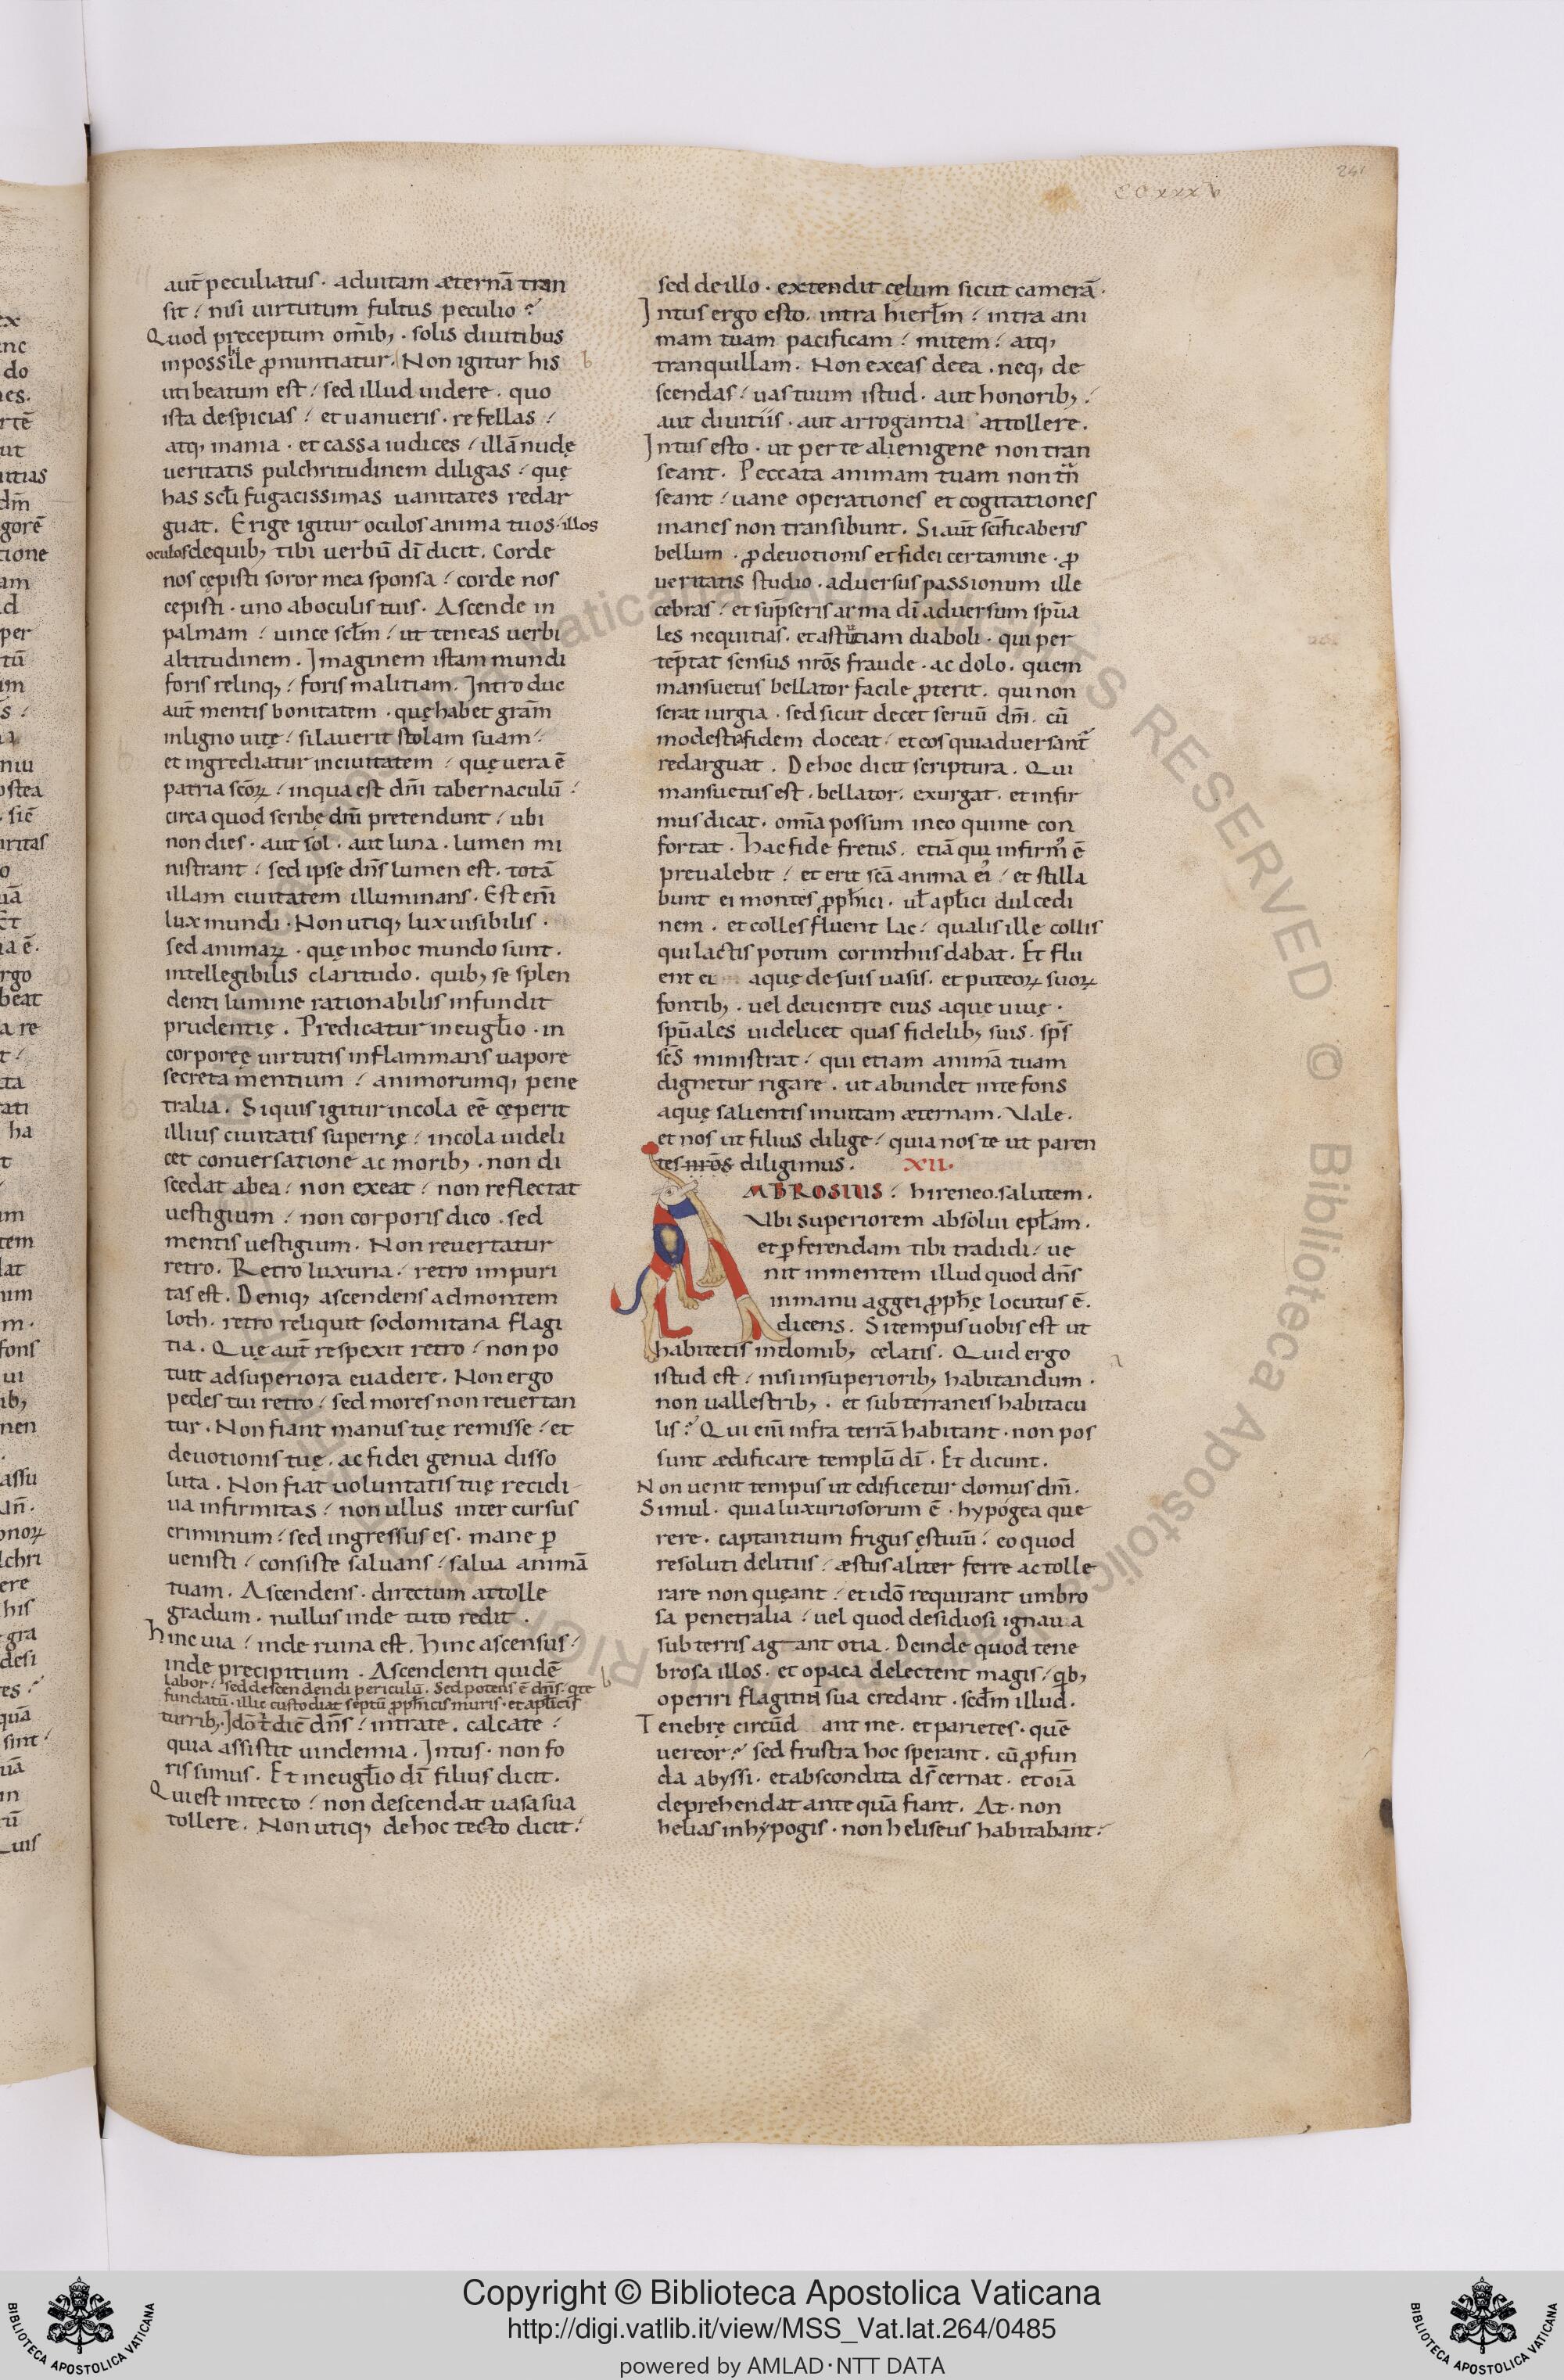 CCXXXV
241
aut̄ peculiatus · ad uitam æternā tran
sit ⸵ nisi uirtutum fultus peculio ?
Quod pręceptum om̄ib; · solis diuitibus
inpossibile ꝓnuntiatur. Non igitur his
uti beatum est ⸵ sed illud uidere · quo
ista despicias ⸵ et uanueris · refellas ⸵
atq; inania · et cassa iudices ⸵ illā nudę
ueritatis pulchritudinem diligas ⸵ quę
has sc̄li fugacissimas uanitates redar
guat. Erige igitur oculos anima tuos · illos
oculos de quib; tibi uerbū dī dicit. Corde
nos cępisti soror mea sponsa ⸵ corde nos
cepisti · uno ab oculis tuis · Ascende in
palmam ⸵ uince sc̄lm ⸵ ut teneas uerbi
altitudinem. Imaginem istam mundi
foris relinq; ⸵ foris malitiam. Intro duc
aut̄ mentis bonitatem · quę habet grām
in ligno uitę ⸵ si lauerit stolam suam ⸵
et ingrediatur in ciuitatem ⸵ quę uera ē
patria scōꝝ ⸵ in qua est dn̄i tabernaculū ⸵
circa quod scribę dn̄i pretendunt ⸵ ubi
non dies · aut sol · aut luna · lumen mi
nistrant ⸵ sed ipse dn̄s lumen est. totā
illam ciuitatem illuminans. Est eni̅
lux mundi · Non utiq; lux uisibilis ·
sed animaꝝ · quę in hoc mundo sunt.
intellegibilis claritudo. quib; se splen
denti lumine rationabilis infundit
prudentię. Predicatur in eugl̄io · in
corporeę uirtutis inflammans uapore
secreta mentium ⸵ animorumq; pene
tralia. Siquis igitur incola eē cęperit
illius ciuitatis supernę ⸵ incola uideli
cet conuersatione ac morib; · non di
scedat ab ea ⸵ non exeat ⸵ non reflectat
uestigium ⸵ non corporis dico · sed
mentis uestigium · Non reuertatur
retro. Retro luxuria ⸵ retro impuri
tas est. Deniq; ascendens ad montem
loth · retro reliquit sodomitana flagi
tia. Quę aut̄ respexit retro ⸵ non po
tuit ad superiora euadere. Non ergo
pedes tui retro ⸵ sed mores non reuertan
tur. Non fiant manus tuę remisse ⸵ et
deuotionis tuę · ac fidei genua disso
luta. Non fiat uoluntatis tuę recidi
ua infirmitas ⸵ non ullus inter cursus
criminum ⸵ sed ingressus es · mane ꝑ
uenisti ⸵ consiste saluans ⸵ salua animā
tuam. Ascendens · directum attolle
gradum · nullus inde tuto redit.
Hinc uia ⸵ inde ruina est. Hinc ascensus ⸵
inde precipitium. Ascendenti quidē
labor ⸵ sed descendendi periculū. Sed potens ē dn̄s · q̄ te
fundatū · illic custodiat septū ꝓph̄icis muris · et apl̄icis
turrib;. Idō t̄ dic̄ dn̄s ⸵ intrate · calcate ⸵
quia assistit uindemia. Intus · non fo
ris simus. Et in eugl̄io dī filius dicit.
Qui est in tecto ⸵ non descendat uasa sua
tollere. Non utiq; de hoc tecto dicit ⸵
sed de illo · extendit cęlum sicut camerā.
Intus ergo esto. intra hierl̄m ⸵ intra ani
mam tuam pacificam ⸵ mitem ⸵ atq;
tranquillam. Non exeas de ea · neq; de
scendas ⸵ uas tuum istud · aut honorib; ⸵
aut diuitiis · aut arrogantia attollere.
Intus esto · ut per te alienigene non tran
seant. Peccata animam tuam non tn̄
seant ⸵ uane operationes et cogitationes
inanes non transibunt. Si aut̄ sc̄ificaberis
bellum · ꝓ deuotionis et fidei certamine · ꝓ
ueritatis studio · aduersus passionum ille
cebras ⸵ et sūpseris arma dī aduersum spūa
les nequitias · et astutiam diaboli · qui per
tēptat sensus nrōs fraude · ac dolo. quem
mansuetus bellator facile ꝓterit. qui non
serat iurgia · sed sicut decet seruū dn̄i · cū
modestia fidem doceat ⸵ et eos qui aduersant᷑
redarguat. De hoc dicit scriptura. Qui
mansuetus est · bellator. exurgat · et infir
mus dicat. om̄ia possum in eo qui me con
fortat. Hac fide fretus. etiā qui infirmꝰ ē
preualebit ⸵ et erit scā anima eiꝰ ⸵ et stilla
bunt ei montes ꝓph̄ici · ul̄ apl̄ici dulcedi
nem · et colles fluent lac ⸵ qualis ille collis
qui lactis potum corinthiis dabat. Et flu
ent ei aquę de suis uasis · et puteoꝝ suoꝝ
fontib; · uel de uentre eius aque uiuę ·
spūales uidelicet quas fidelib; suis · sp̄s
sc̄s ministrat ⸵ qui etiam animā tuam
dignetur rigare · ut abundet in te fons
aquę salientis in uitam æternam. Vale.
et nos ut filius dilige ⸵ quia nos te ut paren
tes nrōs diligimus. XII.
AMBROSIUS ⸵ hireneo · salutem.
Vbi superiorem absolui epl̄am.
et ꝑferendam tibi tradidi ⸵ ue
nit in mentem illud quod dn̄s
in manu aggei ꝓph̄ę locutus ē.
dicens. Si tempus uobis est ut
habitetis in domib; celatis. Quid ergo
istud est ⸵ nisi in superiorib; habitandum ·
non uallestrib; · et subterraneis habitacu
lis ? Qui eni̅ infra terrā habitant · non pos
sunt ædificare templū dī. Et dicunt.
Non uenit tempus ut edificetur domus dn̄i.
Simul · quia luxuriosorum ē · hypogea que
rere · captantium frigus ęstiuū ⸵ eo quod
resoluti delitiis ⸵ æstus aliter ferre ac tolle
rare non queant ⸵ et idō requirant umbro
sa penetralia ⸵ uel quod desidiosi ignaua
sub terris agant otia. Deinde quod tene
brosa illos · et opaca delectent magis ⸵ qb;
operiri flagitia sua credant · scd̄m illud.
Tenebrę circūdant me · et parietes · quē
uereor ? sed frustra hoc sperant · cū ꝓfun
da abyssi · et abscondita ds̄ cernat · et oi̅a
deprehendat ante quā fiant. At · non
helias in hypogis · non heliseus habitabant ⸵
Copyright © Biblioteca Apostolica Vaticana
http://digi.vatlib.it/view/MSS_Vat.lat.264/0485
powered by AMLAD·NTT DATA